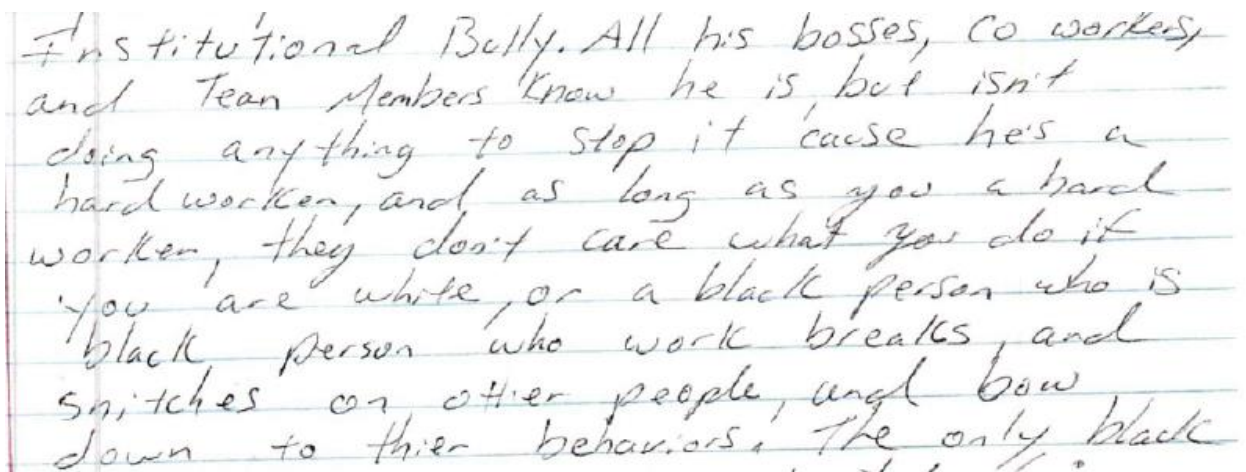 Institutional Bully. All his bosses, co workers,
and Team Members know he is, but isn't
doing anything to stop it cause he's a
hard worker, and as long as you a hard
worker, they don't care what you do if
you are white, or a black person who is
black person who work breaks, and
snitches on other people, and bow
down to thier behaviors. The only black